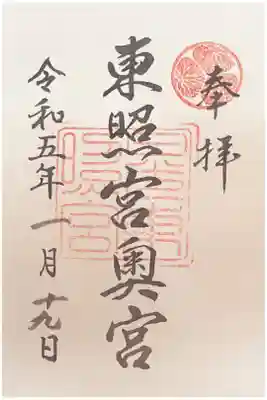 奉拝
東照宮奥宮
令和五年一月十九日